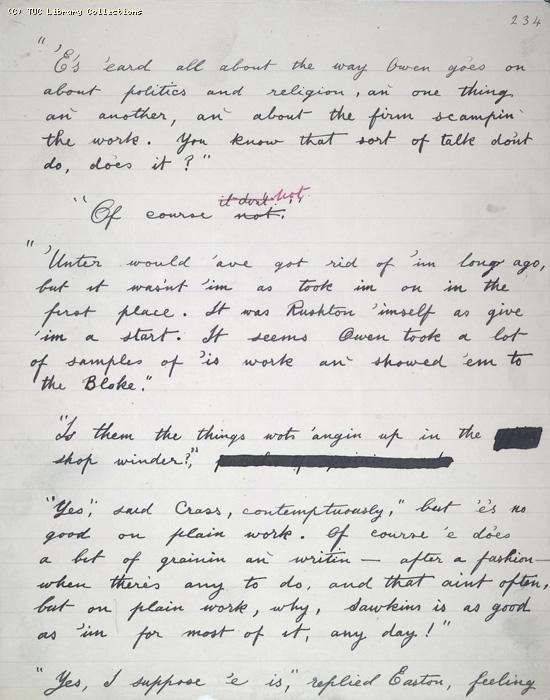 (C) TUC Library Collections
234
"'E's 'eard all about the way Owen goes on
about politics and religion, an' one thing
an' another, an' about the firm scampin'
the work. You know that sort of talk don't
do, does it?"
it don't." not.
"Of course not.
"'Unter would 'ave got rid of 'im long ago,
but it wasn't 'im as took im on in the
first place. It was Rushton 'imself as give
'im a start. It seems Owen took a lot
of samples of 'is work an' showed 'em to
the Bloke."
"Is them the things wot's 'angin up in the
shop winder?"
"Yes", said Crass, contemptuously," but 'e's no
good on plain work. Of course 'e does
a bit of grainin an' writin — after a fashion—
when there's any to do, and that aint often,
but on plain work, why, Sawkins is as good
as 'im for most of it, any day!"
"Yes, I suppose 'e is," replied Easton, feeling